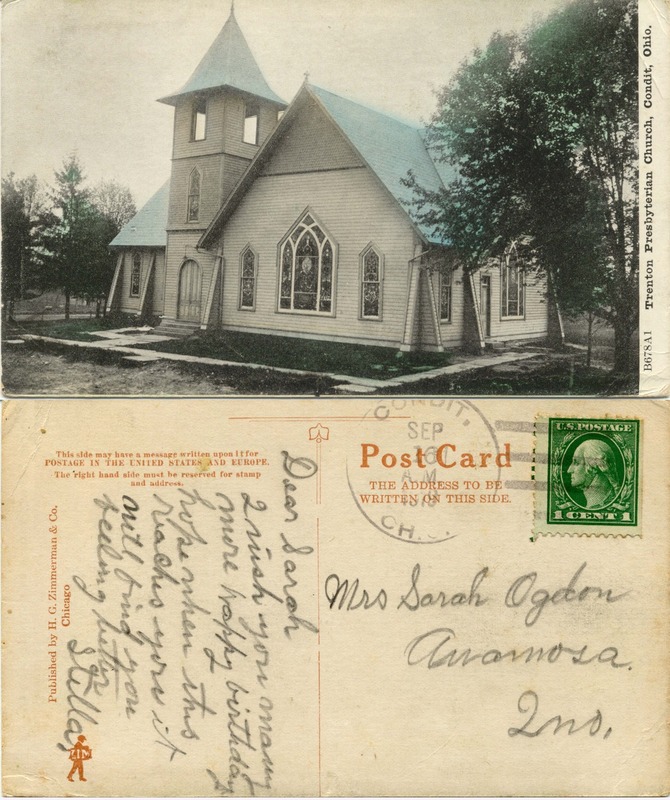 Trenton Presbyterian Church, Condit, Ohio.
B678A1
This side may have a message written upon it for
POSTAGE IN THE UNITED STATES AND EUROPE.
The right hand side must be reserved for stamp
and address.
Published by H. G. Zimmerman & Co.
Chicago
ZIM
Dear Sarah
I wish you many
more happy birthdays
hope when this
reaches you it
will find you
feeling better
Stella
CONDIT,
SEP
16
A.M
OHIO
Post Card
THE ADDRESS TO BE
WRITTEN ON THIS SIDE.
U.S. POSTAGE
1 CENT 1
Mrs Sarah Ogdon
Awamosa.
Ind.